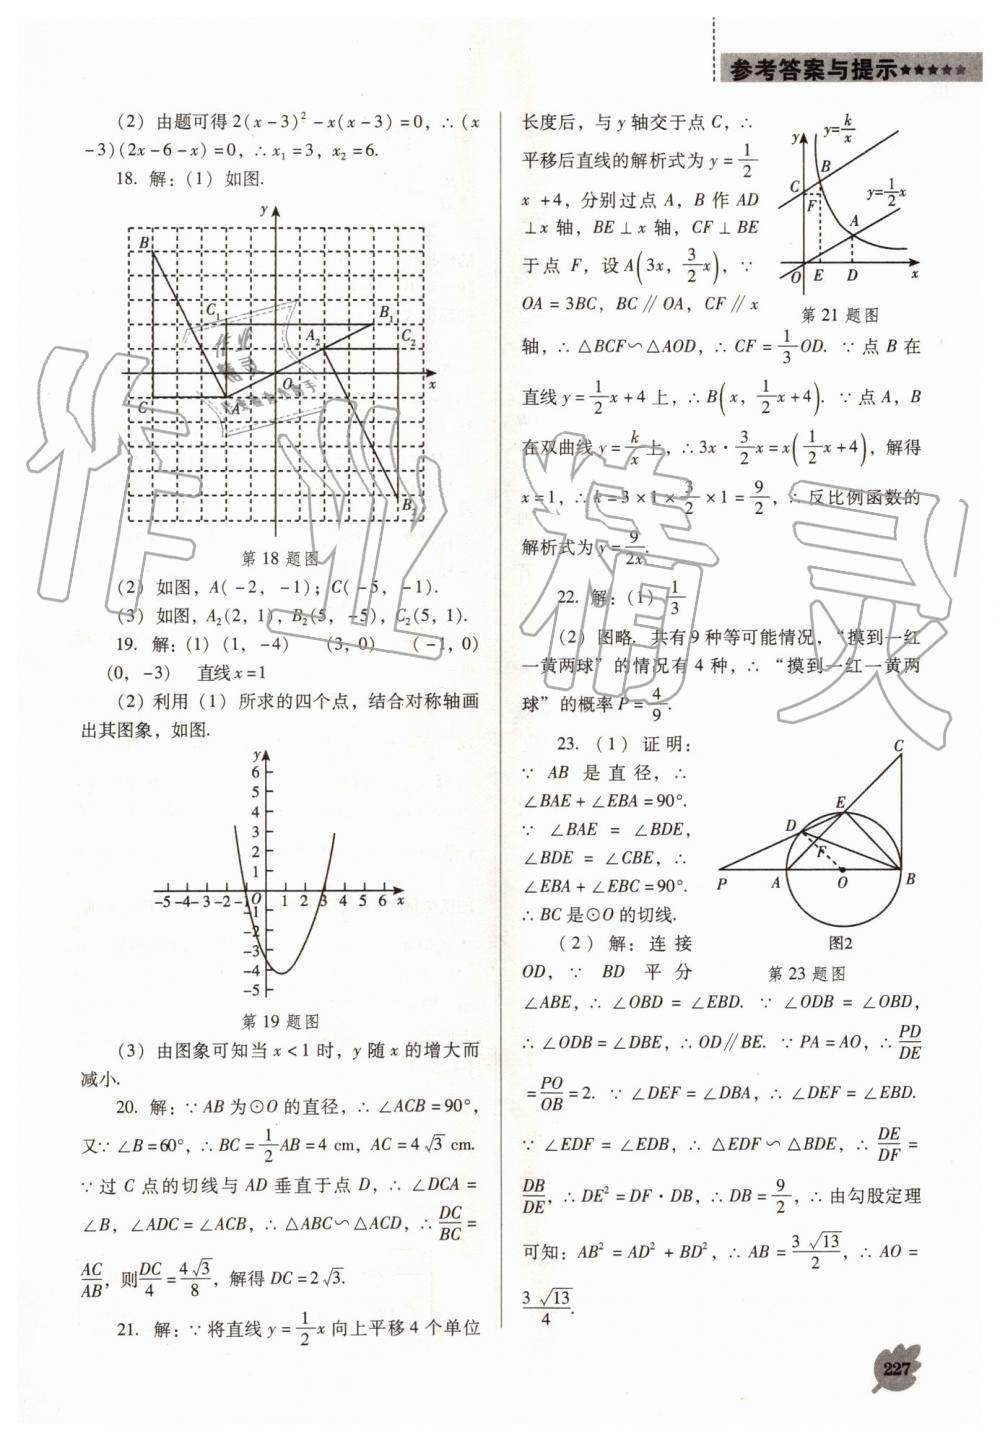 参考答案与提示★★★★★
(2) 由题可得 2(x-3)²-x(x-3)=0,∴(x
-3)(2x-6-x)=0,∴x₁=3, x₂=6.
18. 解:(1) 如图.
第 18 题图
(2) 如图, A(-2, -1); C(-5, -1).
(3) 如图, A₂(2, 1), B₂(5, -5), C₂(5, 1).
19. 解:(1) (1, -4) (3, 0) (-1, 0)
(0, -3) 直线 x=1
(2) 利用 (1) 所求的四个点, 结合对称轴画
出其图象, 如图.
第 19 题图
(3) 由图象可知当 x<1 时, y 随 x 的增大而
减小.
20. 解:∵AB 为⊙O 的直径,∴∠ACB=90°,
又∵∠B=60°,∴BC=1/2AB=4 cm, AC=4√3 cm.
∵过 C 点的切线与 AD 垂直于点 D,∴∠DCA=
∠B, ∠ADC=∠ACB,∴△ABC∽△ACD,∴DC/BC=
AC/AB, 则DC/4=4√3/8, 解得 DC=2√3.
21. 解:∵将直线 y=1/2x 向上平移 4 个单位
长度后, 与 y 轴交于点 C,∴
平移后直线的解析式为 y=1/2
x+4, 分别过点 A, B 作 AD
⊥x 轴, BE⊥x 轴, CF⊥BE
于点 F, 设 A(3x, 3/2x),∵
OA=3BC, BC∥OA, CF∥x
第 21 题图
轴,∴△BCF∽△AOD,∴CF=1/3OD. ∵点 B 在
直线 y=1/2x+4 上,∴B(x, 1/2x+4). ∵点 A, B
在双曲线 y=k/x上,∴3x·3/2x=x(1/2x+4), 解得
x=1,∴k=3×1×3/2×1=9/2,∴反比例函数的
解析式为 y=9/2x.
22. 解:(1) 1/3
(2) 图略. 共有 9 种等可能情况, “摸到一红
一黄两球” 的情况有 4 种,∴“摸到一红一黄两
球” 的概率 P=4/9.
23. (1) 证明:
∵ AB 是直径,∴
∠BAE+∠EBA=90°.
∵ ∠BAE=∠BDE,
∠BDE=∠CBE,∴
∠EBA+∠EBC=90°.
∴BC 是⊙O 的切线.
图2
(2) 解:连接
第 23 题图
OD,∵ BD 平分
∠ABE,∴∠OBD=∠EBD. ∵∠ODB=∠OBD,
∴∠ODB=∠DBE,∴OD∥BE. ∵PA=AO,∴PD/DE
=PO/OB=2. ∵∠DEF=∠DBA,∴∠DEF=∠EBD.
∵∠EDF=∠EDB,∴△EDF∽△BDE,∴DE/DF=
DB/DE,∴DE²=DF·DB,∴DB=9/2,∴由勾股定理
可知:AB²=AD²+BD²,∴AB=3√13/2,∴AO=
3√13/4.
227